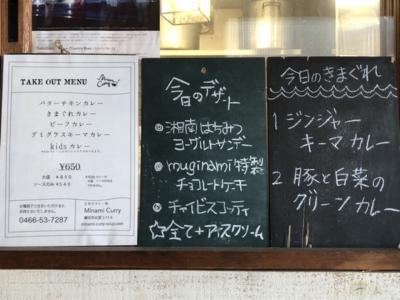 TAKE OUT MENU
バターチキンカレー
きまぐれカレー
ビーフカレー
デミグラスキーマカレー
kidsカレー
¥650
大盛 ¥850
ソースのみ ¥540
0466-53-7287
Minami Curry
minami-curry-soup.com
今日のデザート
湘南はちみつ
ヨーグルトサンデー
muginami特製
チョコレートケーキ
チャイビスコッティ
☆全て+アイスクリーム
今日のきまぐれ
1 ジンジャー
キーマカレー
2 豚と白菜の
グリーンカレー